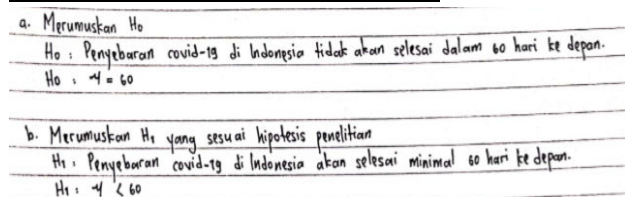 a. Merumuskan H₀
H₀ : Penyebaran covid-19 di Indonesia tidak akan selesai dalam 60 hari ke depan.
H₀ : μ = 60
b. Merumuskan H₁ yang sesuai hipotesis penelitian
H₁ : Penyebaran covid-19 di Indonesia akan selesai minimal 60 hari ke depan.
H₁ : μ < 60